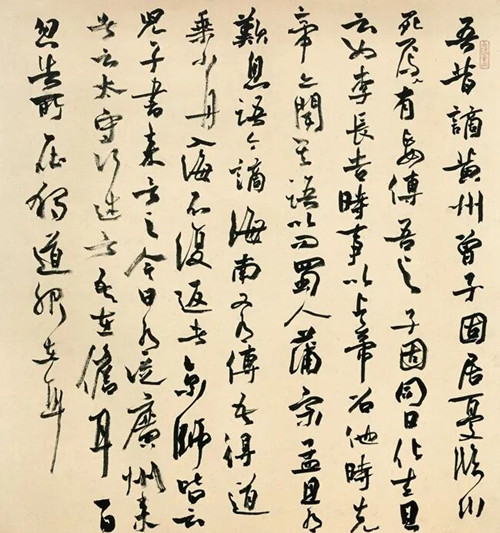 吾昔謫黃州曾子固居憂臨川
死焉有妄傳吾與子固同日化去且
云如李長吉時事以上帝召他時先
帝亦聞其語以問蜀人蒲宗孟且有
歎息語今謫海南又有傳吾得道
乘小舟入海不復返者京師皆云
兒子書來言之今日有從廣州來
者云太守述言吾在儋耳一日
忽失所在獨道服在耳